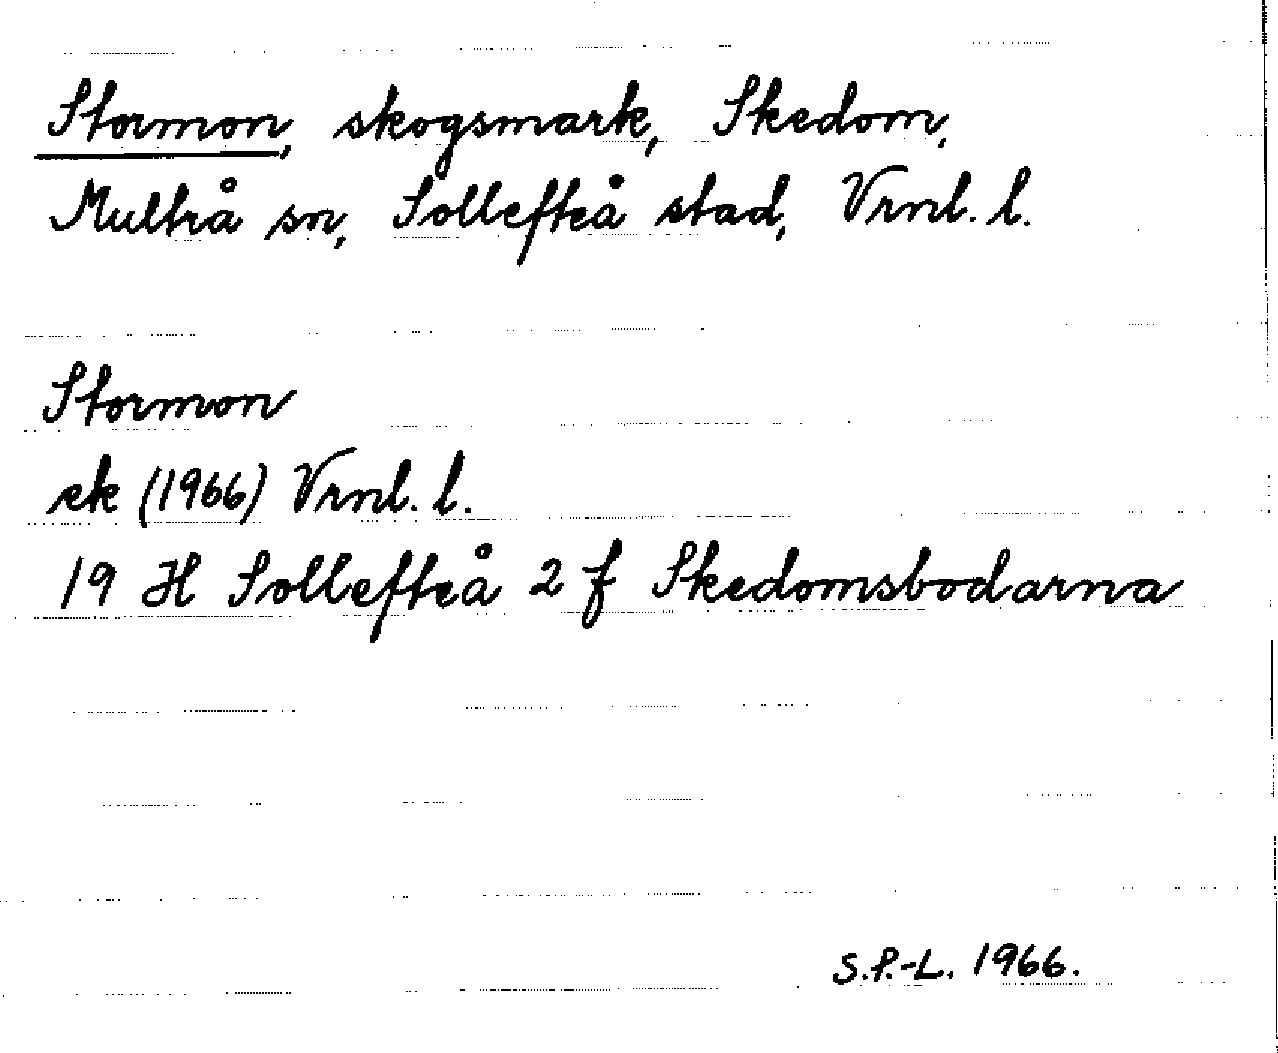 Stormon, skogsmark, Skedom,
Multrå sn, Sollefteå stad, Vrnl. l.
Stormon
ek (1966) Vrnl. l.
19 H Sollefteå 2 f Skedomsbodarna
S.P.-L. 1966.